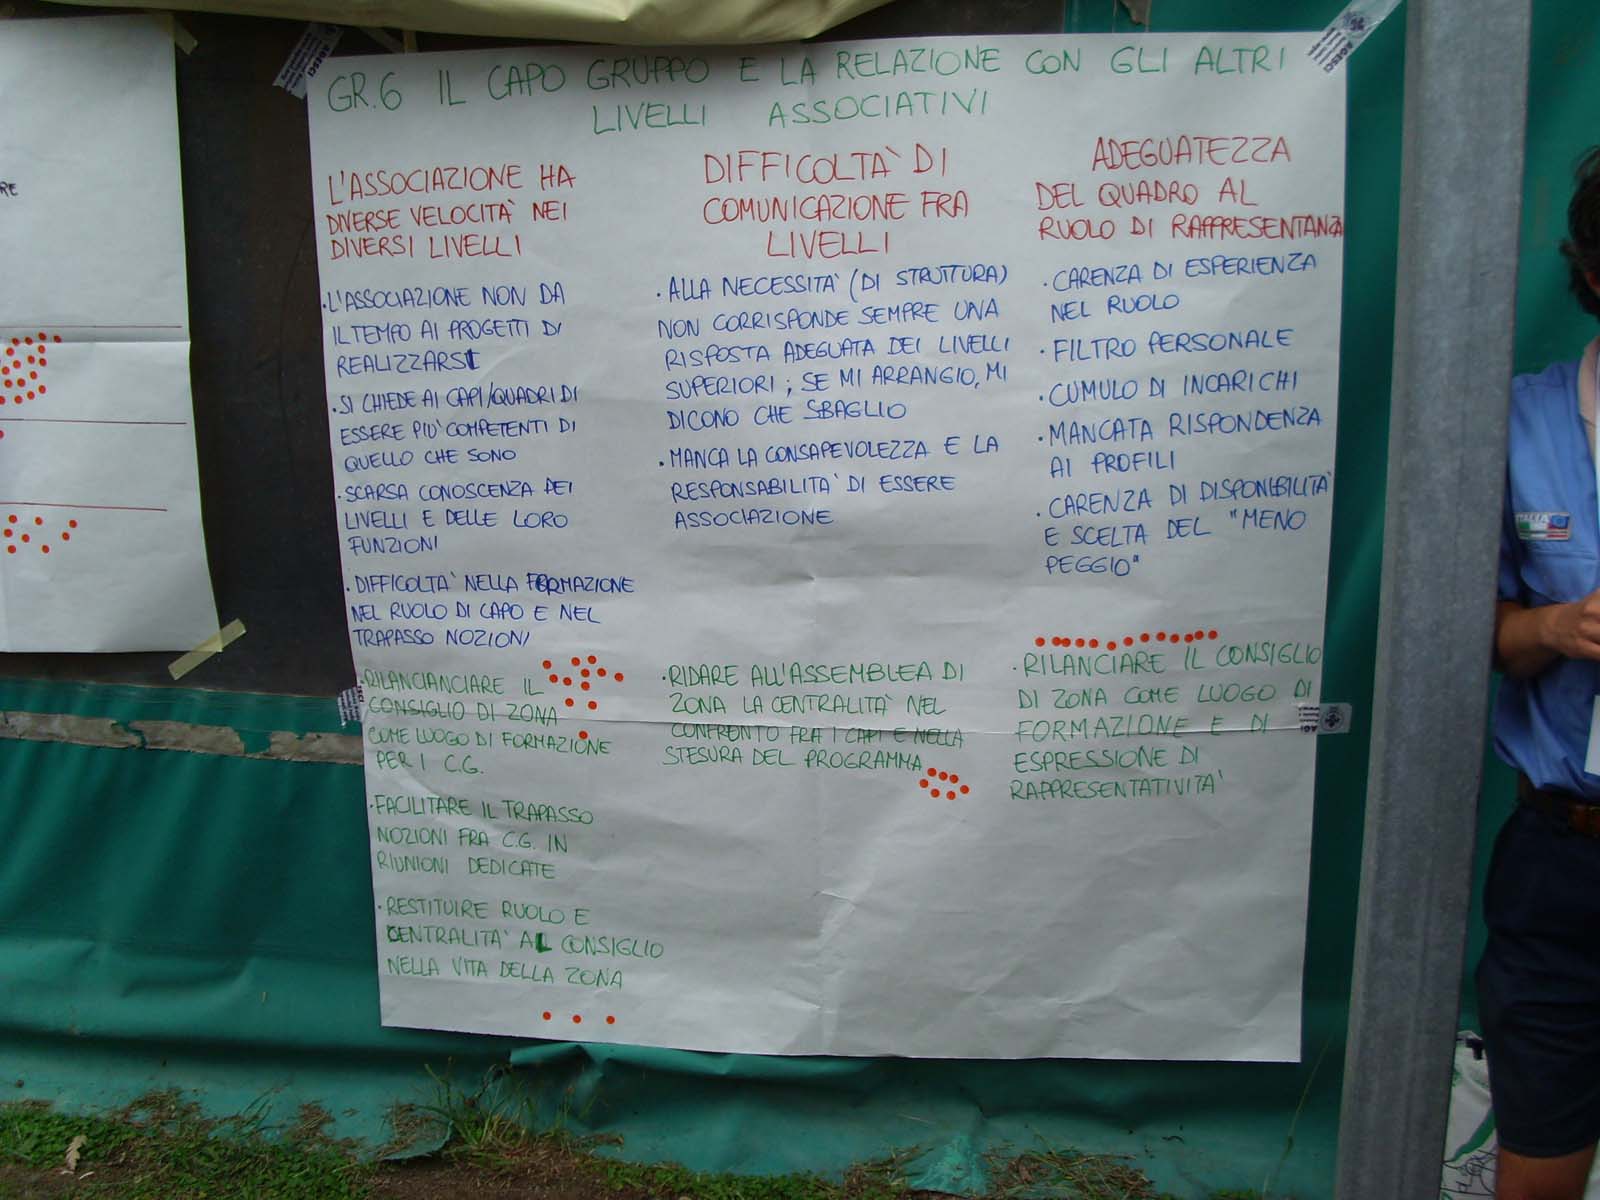 GR.6 IL CAPO GRUPPO E LA RELAZIONE CON GLI ALTRI
LIVELLI ASSOCIATIVI
L'ASSOCIAZIONE HA
DIVERSE VELOCITÀ NEI
DIVERSI LIVELLI
·L'ASSOCIAZIONE NON DA
IL TEMPO AI PROGETTI DI
REALIZZARSI
·SI CHIEDE AI CAPI/QUADRI DI
ESSERE PIÙ COMPETENTI DI
QUELLO CHE SONO
·SCARSA CONOSCENZA DEI
LIVELLI E DELLE LORO
FUNZIONI
·DIFFICOLTÀ NELLA FORMAZIONE
NEL RUOLO DI CAPO E NEL
TRAPASSO NOZIONI
·RILANCIANCIARE IL
CONSIGLIO DI ZONA
COME LUOGO DI FORMAZIONE
PER I C.G.
·FACILITARE IL TRAPASSO
NOZIONI FRA C.G. IN
RIUNIONI DEDICATE
·RESTITUIRE RUOLO E
CENTRALITÀ AL CONSIGLIO
NELLA VITA DELLA ZONA
DIFFICOLTÀ DI
COMUNICAZIONE FRA
LIVELLI
·ALLA NECESSITÀ (DI STRUTTURA)
NON CORRISPONDE SEMPRE UNA
RISPOSTA ADEGUATA DEI LIVELLI
SUPERIORI; SE MI ARRANGIO, MI
DICONO CHE SBAGLIO
·MANCA LA CONSAPEVOLEZZA E LA
RESPONSABILITÀ DI ESSERE
ASSOCIAZIONE
·RIDARE ALL'ASSEMBLEA DI
ZONA LA CENTRALITÀ NEL
CONFRONTO FRA I CAPI E NELLA
STESURA DEL PROGRAMMA
ADEGUATEZZA
DEL QUADRO AL
RUOLO DI RAPPRESENTANZA
·CARENZA DI ESPERIENZA
NEL RUOLO
·FILTRO PERSONALE
·CUMULO DI INCARICHI
·MANCATA RISPONDENZA
AI PROFILI
·CARENZA DI DISPONIBILITÀ
E SCELTA DEL "MENO
PEGGIO"
·RILANCIARE IL CONSIGLIO
DI ZONA COME LUOGO DI
FORMAZIONE E DI
ESPRESSIONE DI
RAPPRESENTATIVITÀ
AGESCI
AGESCI
RE